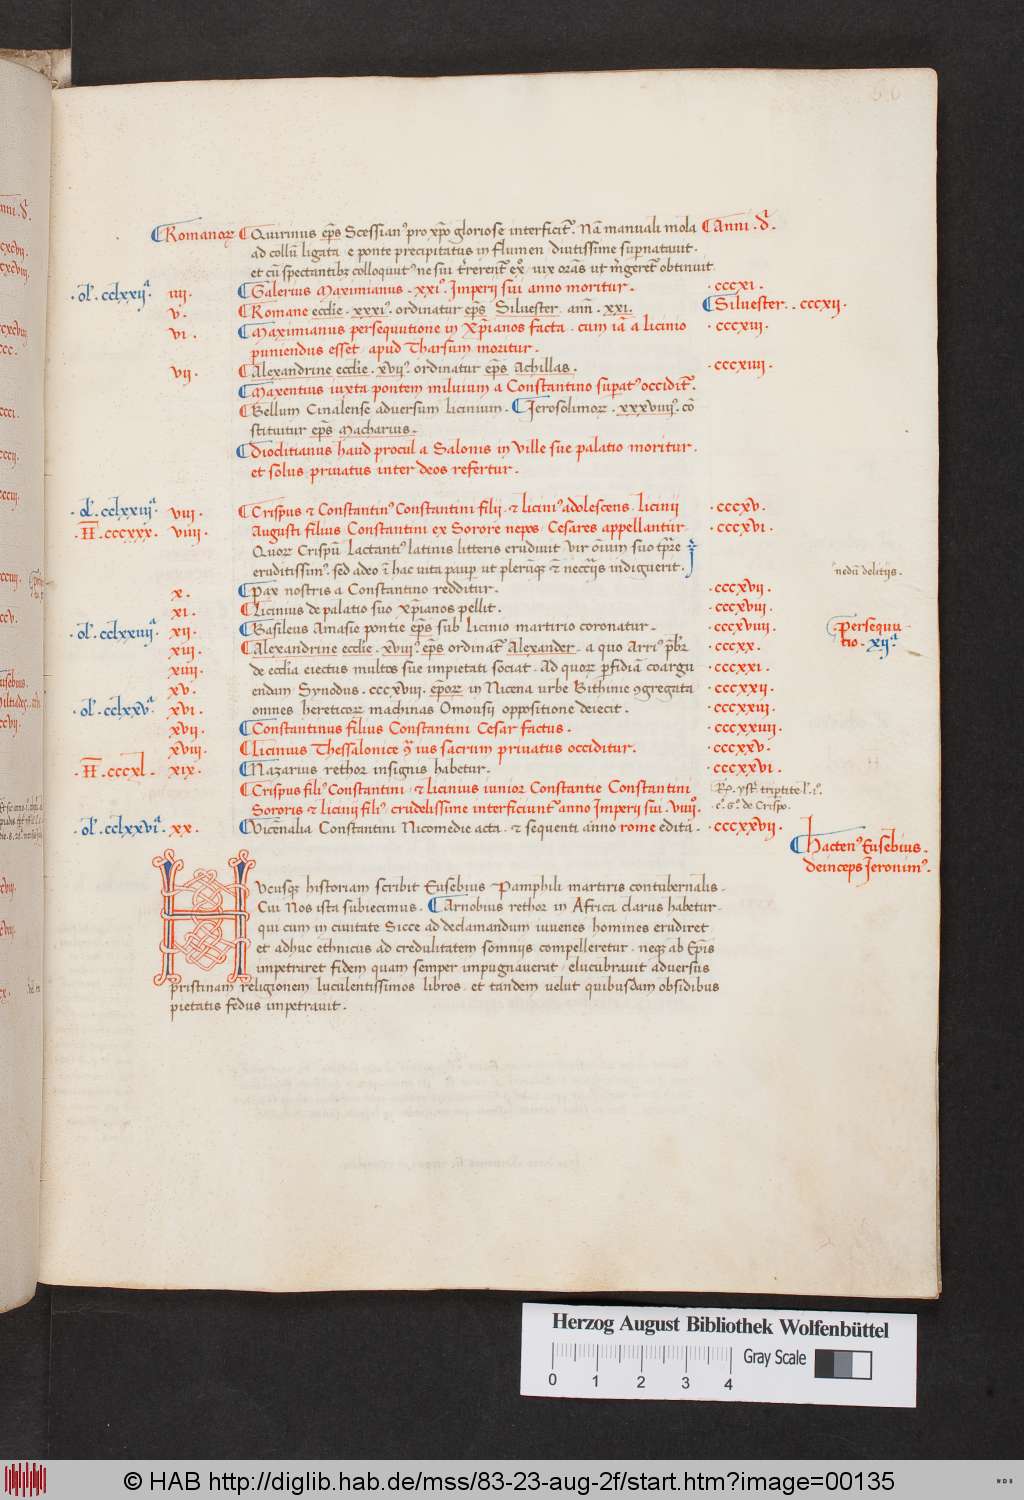 ¶Romanoꝝ ¶Quirinus ep̄s Scessianꝰ pro xp̄o gloriose interficit᷑. Nā manuali mola ¶Anni. d̄.
ad collū ligata e ponte precipitatus in flumen diutissime supernatauit.
et cū spectantibꝫ colloquut᷑ ne sui
¶Galerius Maximianus. xxiꝰ. Imperij sui anno moritur.
·ol'. cclxxijᵃ. iiij. · cccxi.
v. ¶Romane ecclie. xxxiꝰ. ordinatur ep̄s Siluester. ann̄. xxi. ¶Siluester.. cccxij.
vi. ¶Maximianus persequutione in Xp̄ianos facta. cum iā a licinio · cccxiij.
puniendus esset apud Tharsum moritur.
vij. ¶Alexandrine ecclie. xvijꝰ. ordinatur ep̄s Achillas. · cccxiiij.
¶Maxentius iuxta pontem miluium a Constantino superatꝰ occidit᷑.
¶Bellum Cinalense aduersum licinium. ¶Jerosolimoꝝ. xxxviiijꝰ. cō
stituitur ep̄s Macharius.
¶Dioclitianus haud procul a Salonis in ville sue palatio moritur.
et solus priuatus inter deos refertur.
·ol'. cclxxiijᵃ. viij. ¶Crispus ⁊ Constantinꝰ Constantini filij. ⁊ liciniꝰ adolescens. licinij · cccxv.
·H̄. cccxxx. viiij. Augusti filius Constantini ex Sorore nepos. Cesares appellantur · cccxvi.
Quoꝝ Crispū Lactantiꝰ latinis litteris erudiuit vir oīum suo tp̄re
eruditissimꝰ. sed adeo ī hac uita pauper ut plerūqꝫ ⁊ necc̄ijs indiguerit. nedū delitijs.
x. ¶Pax nostris a Constantino redditur. · cccxvij.
xi. ¶Licinius de palatio suo xp̄ianos pellit. · cccxviij.
·ol'. cclxxiiijᵃ. xij. ¶Basileus Amasie pontie ep̄s sub licinio martirio coronatur. · cccxviiij. ¶persequu
xiij. ¶Alexandrine ecclie. xviijꝰ. ep̄s ordinat᷑ Alexander. a quo Arriꝰ p̄br · cccxx. tio. xijᵃ
xiiij. de ecclia eiectus multos sue impietati sociat. Ad quoꝝ perfidiā coargu · cccxxi.
xv. endam Synodus. cccxviij. ep̄oꝝ in Nicena urbe Bithinie ꝯgregata · cccxxij.
·ol'. cclxxvᵃ. xvi. omnes hereticoꝝ machinas Omousij oppositione deiecit. · cccxxiij.
xvij. ¶Constantinus filius Constantini Cesar factus. · cccxxiiij.
xviij. ¶Licinius Thessalonice ꝯ̄ ius sacrum priuatus occiditur. · cccxxv.
·H̄. cccxl. xix. ¶Nazarius rethor insignis habetur. · cccxxvi.
¶Crispus filiꝰ Constantini. ⁊ licinius iunior Constantie Constantini
Sororis ⁊ licinij filiꝰ crudelissime interficiunt᷑ anno Imperij sui. viiijꝰ. de Crispo.
·ol'. cclxxviᵃ. xx. ¶Vicēnalia Constantini Nicomedie acta. ⁊ sequenti anno rome edita. · cccxxvij. ¶hactenꝰ Eusebius.
deinceps Jeronimꝰ.
Hucusqꝫ historiam scribit Eusebius ⁊ Pamphili martiris contubernalis.
Cui Nos ista subiecimus. ¶Arnobius rethor in Africa clarus habetur.
qui cum in ciuitate Sicce ad declamandum iuuenes homines erudiret
et adhuc ethnicus ad credulitatem somnijs compelleretur. neqꝫ ab Ep̄is
impetraret fidem quam semper impugnauerat. elucubrauit aduersus
pristinam religionem luculentissimos libros. et tandem uelut quibusdam obsidibus
pietatis fedus impetrauit.
Herzog August Bibliothek Wolfenbüttel
Gray Scale
0 1 2 3 4
© HAB http://diglib.hab.de/mss/83-23-aug-2f/start.htm?image=00135